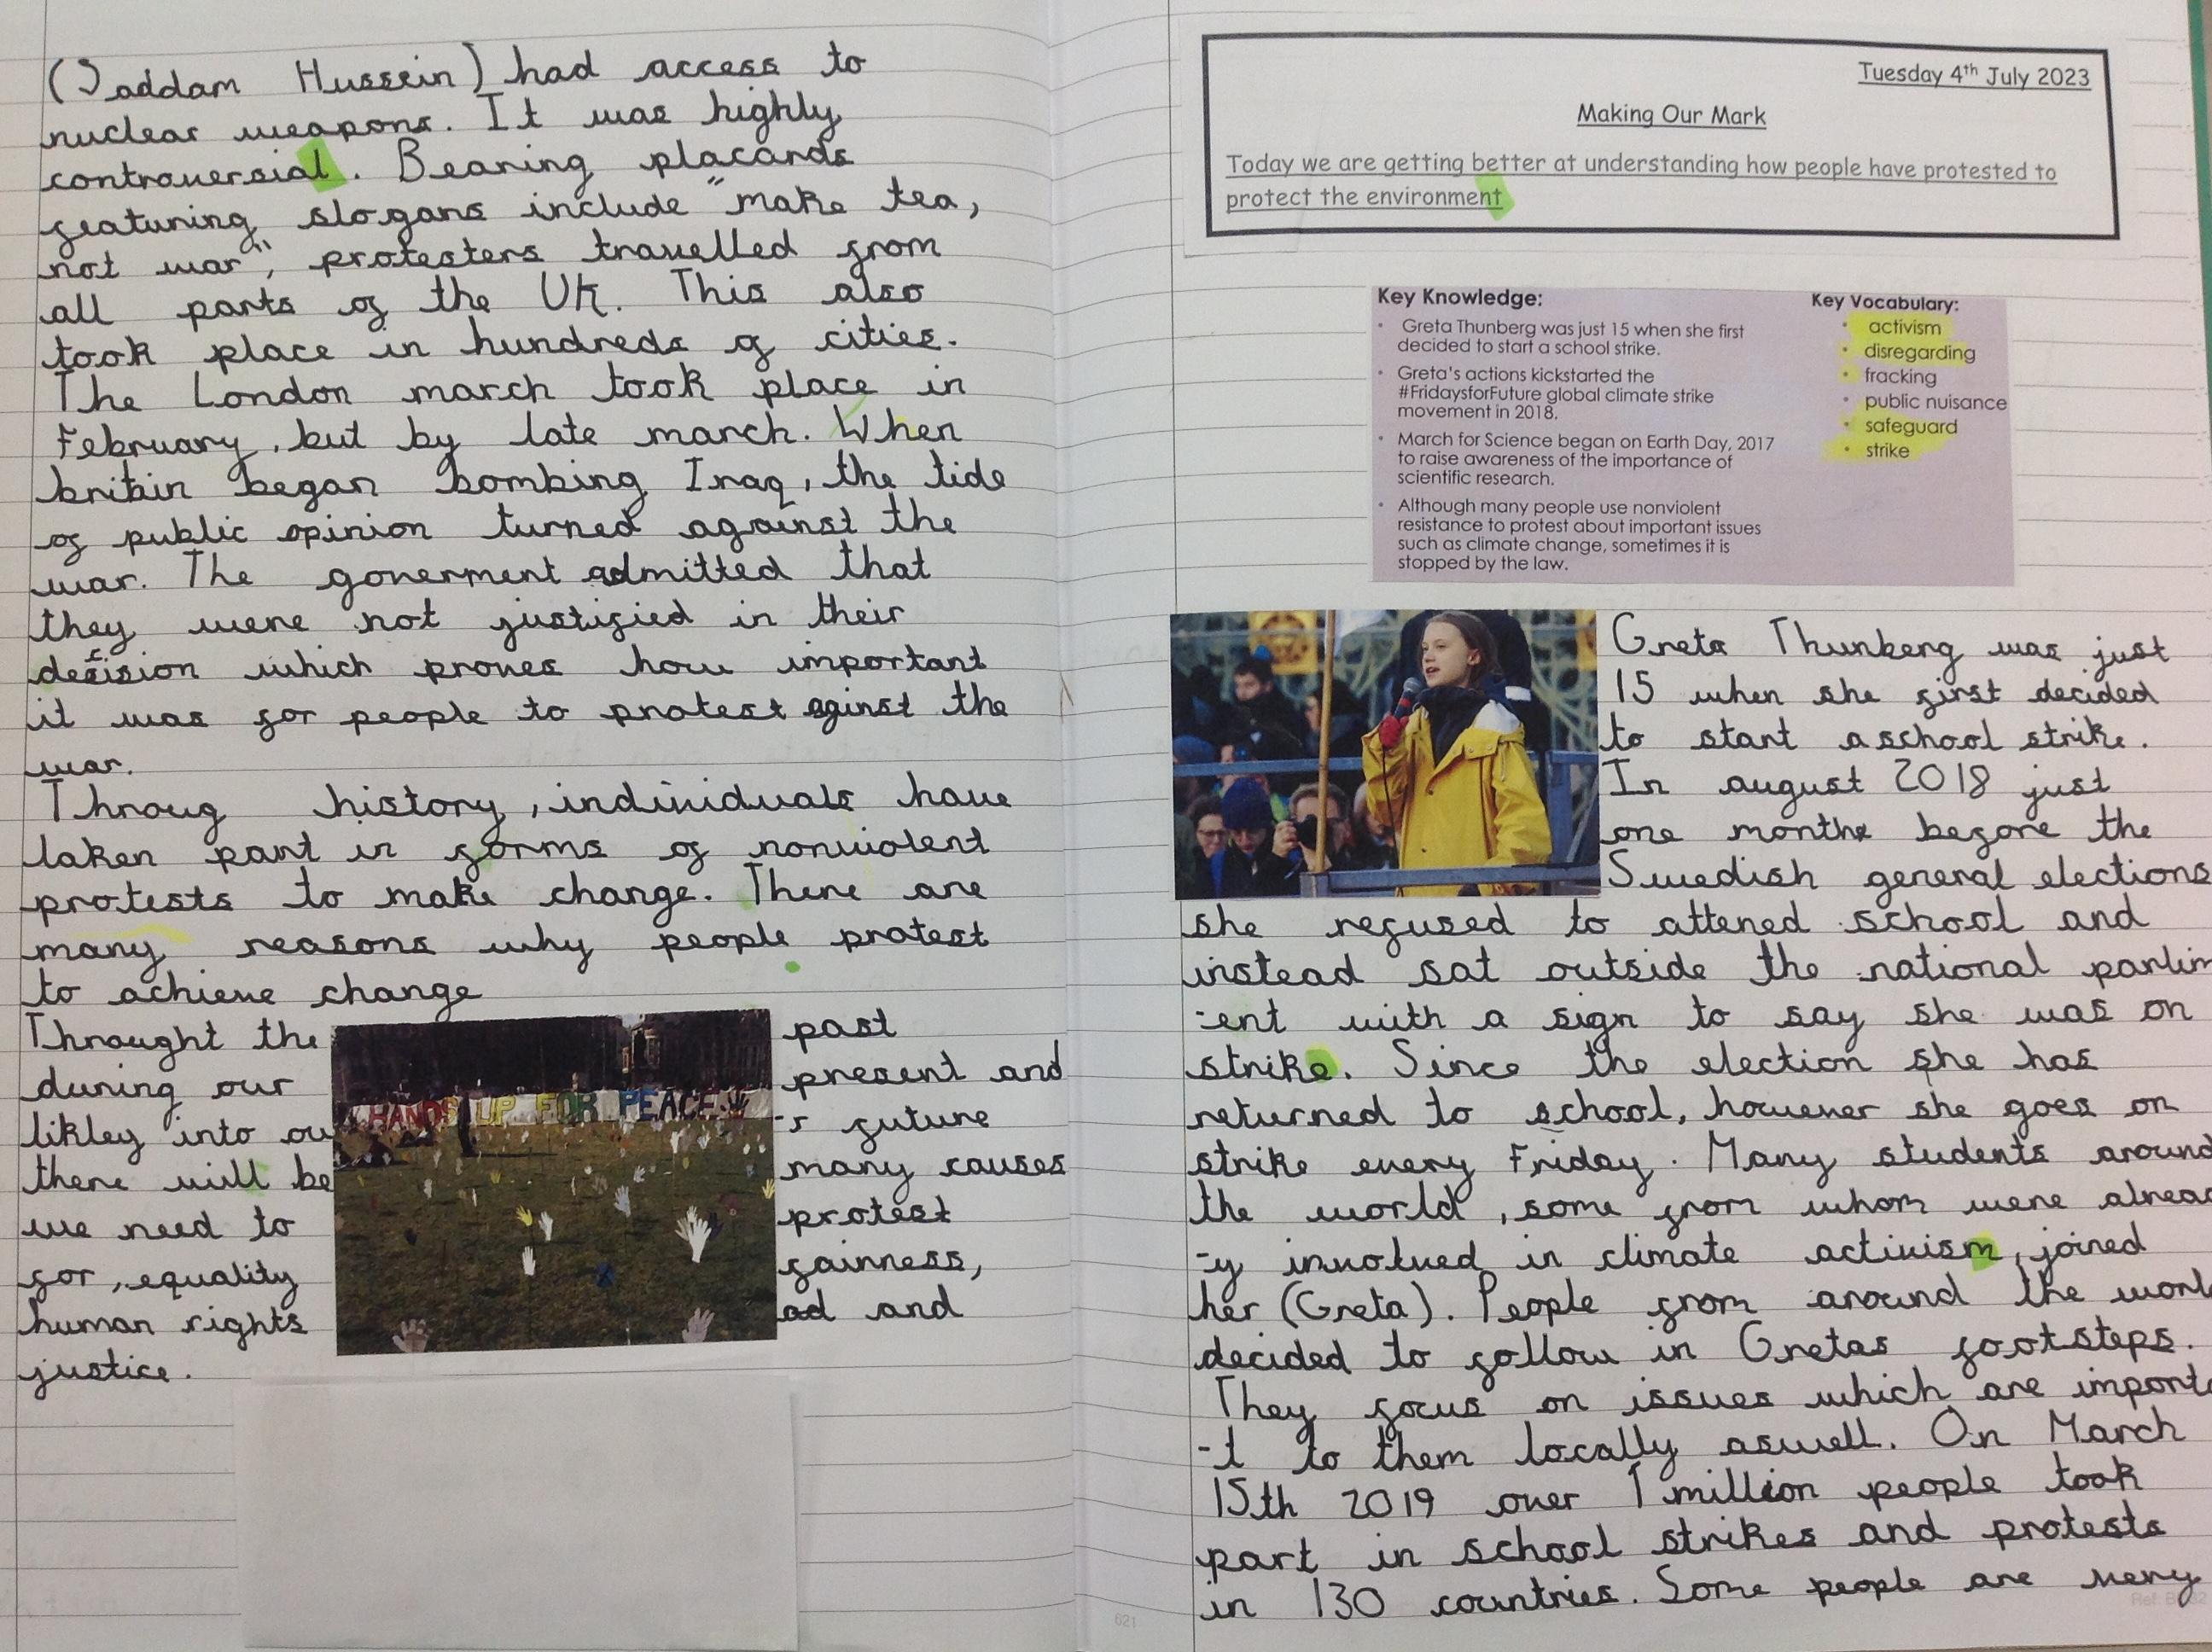 (Saddam Hussein) had access to
nuclear weapons. It was highly
controversial. Bearing placards
featuring slogans include "make tea,
not war", protesters travelled from
all parts of the UK. This also
took place in hundreds of cities.
The London march took place in
February, but by late march. When
britain began bombing Iraq, the tide
of public opinion turned against the
war. The goverment admitted that
they were not justified in their
decision which proves how important
it was for people to protest aginst the
war.
Throug history, individuals have
taken part in forms of nonviolent
protests to make change. There are
many reasons why people protest
to achieve change
Throught the past
during our present and
likley into ou -r future
there will be many causes
we need to protest
for, equality fairness,
human rights ad and
justice.
HANDS UP FOR PEACE
621
Tuesday 4th July 2023
Making Our Mark
Today we are getting better at understanding how people have protested to
protect the environment
Key Knowledge:
• Greta Thunberg was just 15 when she first
decided to start a school strike.
• Greta's actions kickstarted the
#FridaysforFuture global climate strike
movement in 2018.
• March for Science began on Earth Day, 2017
to raise awareness of the importance of
scientific research.
• Although many people use nonviolent
resistance to protest about important issues
such as climate change, sometimes it is
stopped by the law.
Key Vocabulary:
• activism
• disregarding
• fracking
• public nuisance
• safeguard
• strike
Greta Thunberg was just
15 when she first decided
to start a school strike.
In august 2018 just
one months before the
Swedish general elections
she refused to attened school and
instead sat outside the national parlim
-ent with a sign to say she was on
strike. Since the election she has
returned to school, however she goes on
strike every Friday. Many students around
the world, some from whom were alrea
-y involved in climate activism, joined
her (Greta). People from around the worl
decided to follow in Gretas footsteps.
They focus on issues which are import
-t to them locally aswell. On March
15th 2019 over 1 million people took
part in school strikes and protests
in 130 countries. Some people are very